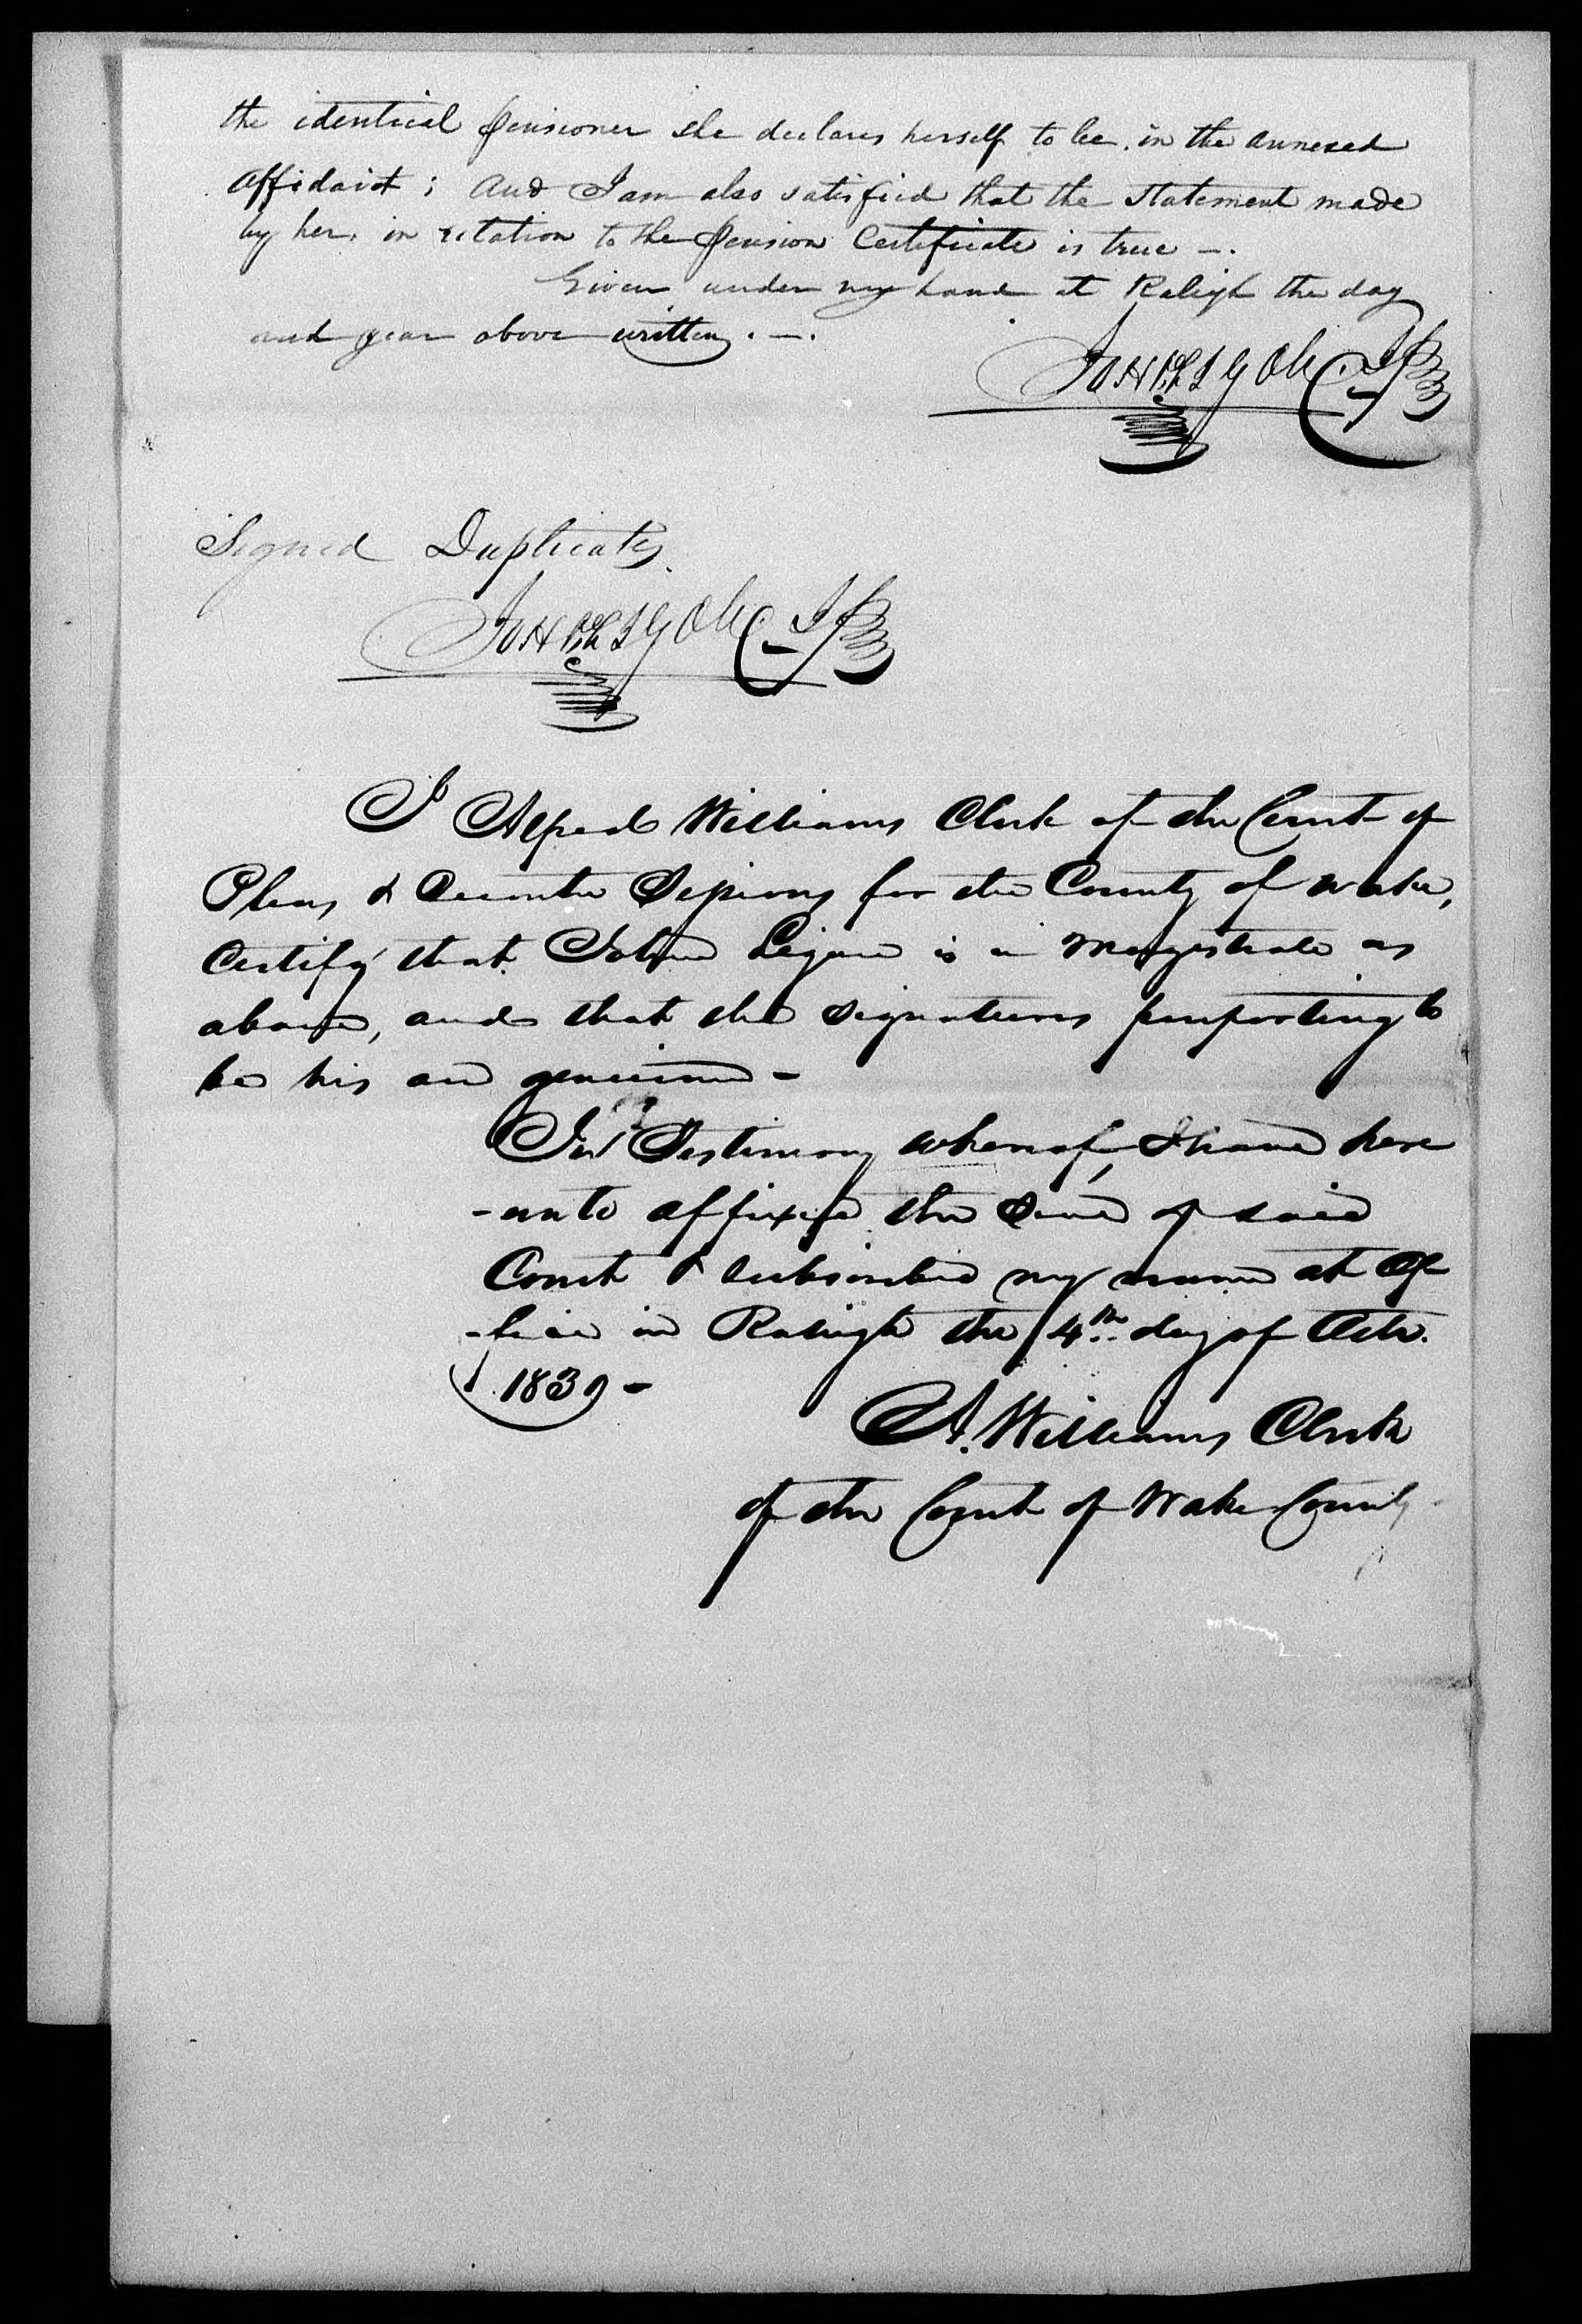 the identical pensioner she declares herself to be in the annexed
affidavit; And I am also satisfied that the statement made
by her, in relation to the Pension Certificate is true —.
Given under my hand at Raleigh the day
and year above written. —.
John Ligon J P
Signed Duplicates
John Ligon J P
I Alfred Williams Clerk of the Court of
Pleas & Quarter Sessions for the County of Wake,
Certify that John Ligon is a Magistrate as
above, and that the signatures purporting to
be his are genuine -
In Testimony whereof, I have here
-unto affixed the Seal of said
Court & subscribed my name at Of
-fice in Raleigh the 4th day of Octr.
1839 -
A. Williams Clerk
of the Court of Wake County